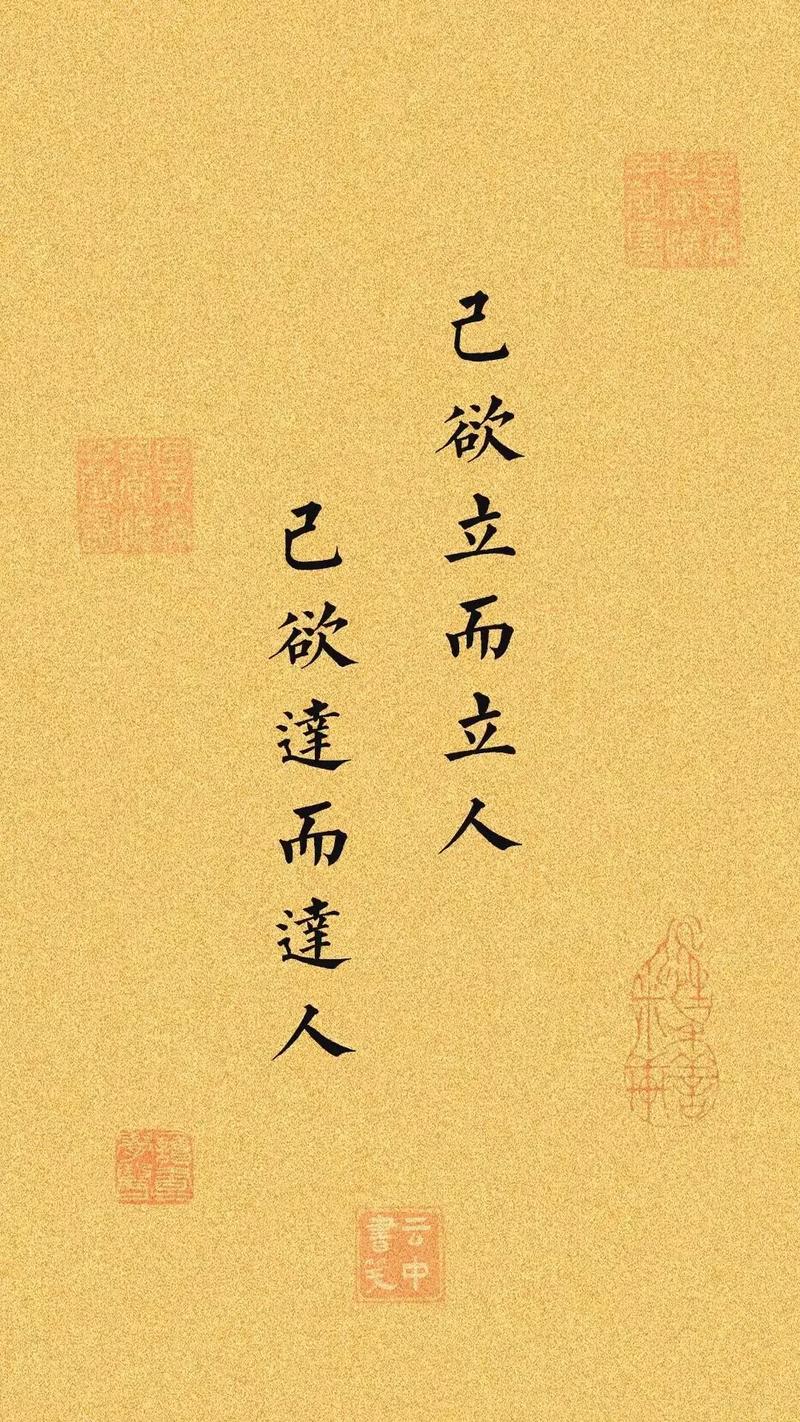 己欲立而立人
己欲達而達人
云中
書笺